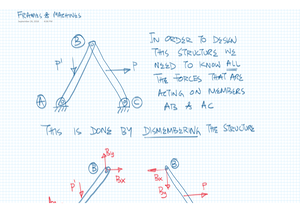 FRAMES & MACHINES
B
IN ORDER TO DESIGN
THIS STRUCTURE WE
NEED TO KNOW ALL
THE FORCES THAT ARE
ACTING ON MEMBERS
ATB & AC
P'
P
A
C
THIS IS DONE BY DISMEMBERING THE STRUCTURE
By
B
Bx
P'
B
Bx
By
P